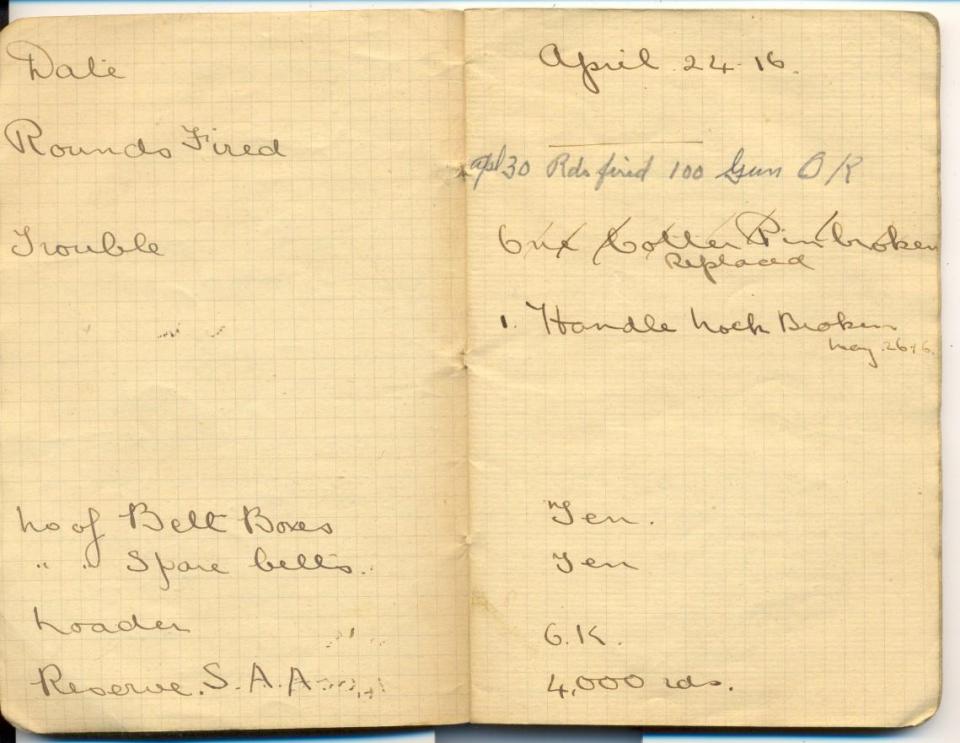 Date
Rounds Fired
Trouble
No of Belt Boxes
" " Spare belts.
Loader
Reserve. S.A.A
April 24-16.
apl 30 Rds fired 100 Gun O/K
One Cotter Pin broken
Replaced
1. Handle Lock Broken
May 26-16.
Ten.
Ten
O.K.
4,000 rds.